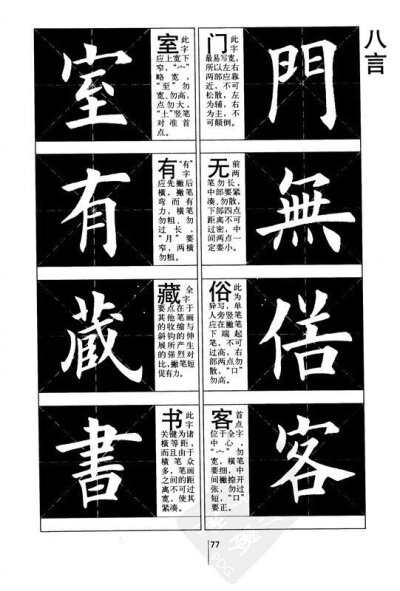 八言
門
门此字
最易写宽，
所以左右
两部应靠
近，不可
松散，左
为辅，右
为主，不
可颠倒。
無
无前两
笔勿长，
中部要紧
凑、勿散，
下部四点
距离不可
过密，中
间两点一
定要小。
俗
俗此为
异写，单
人旁竖笔
应在撇笔
下端起
笔，不可
过高，右
部两点勿
散，“口”
勿高。
客
客首点
位于全字
中心，
“宀”勿
宽，横笔
要细，中
间撇捺开
张，勿过
短，“口”
要正。
室
室此字
应上宽下
窄，“宀”
略宽，
“至”勿
宽，勿高，
点勿大，
“土”竖笔
对准首
点。
有
有“有”字
应先撇后
横，撇笔
弯而有
力，横笔
勿粗、勿
过长，
“月”要
窄，两横
勿粗。
藏
藏全字
要点在于
其他笔画
的收缩与
斜钩的伸
展所产生
的强烈对
比，撇笔短
促有力。
書
书此字
关键为诸
横等距，
而且由于
横笔众
多，笔画
之间的距
离不可过
宽，使其
紧凑。
77